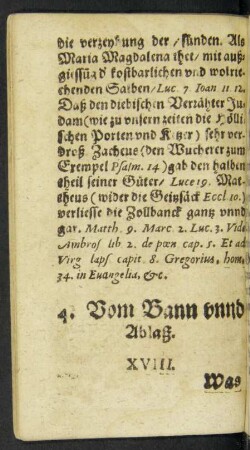 die verzeyhung der sünden. Als
Maria Magdalena thet/ mit auß-
giessũg d' kostbarlichen vnd wolrie-
chenden Salben/ Luc. 7. Ioan 11 12.
Daß den diebischen Verrähter Ju-
dam (wie zu vnsern zeiten die Hölli-
schen Porten vnd Ketzer) sehr ver-
droß. Zacheus (den Wucherer zum
Exempel Psalm. 14) gab den halben
theil seiner Güter/ Luce 19. Mat-
theus (wider die Geitzsäck Eccl 10.)
verliesse die Zollbanck gantz vnnd
gar. Matth. 9. Marc. 2. Luc. 3. Vide
Ambros lib 2. de pœn cap. 5. Et ad
Virg laps capit. 8. Gregorius, hom.
34. in Euangelia, &c.
4. Vom Bann vnnd
Ablaß.
XVIII.
Was